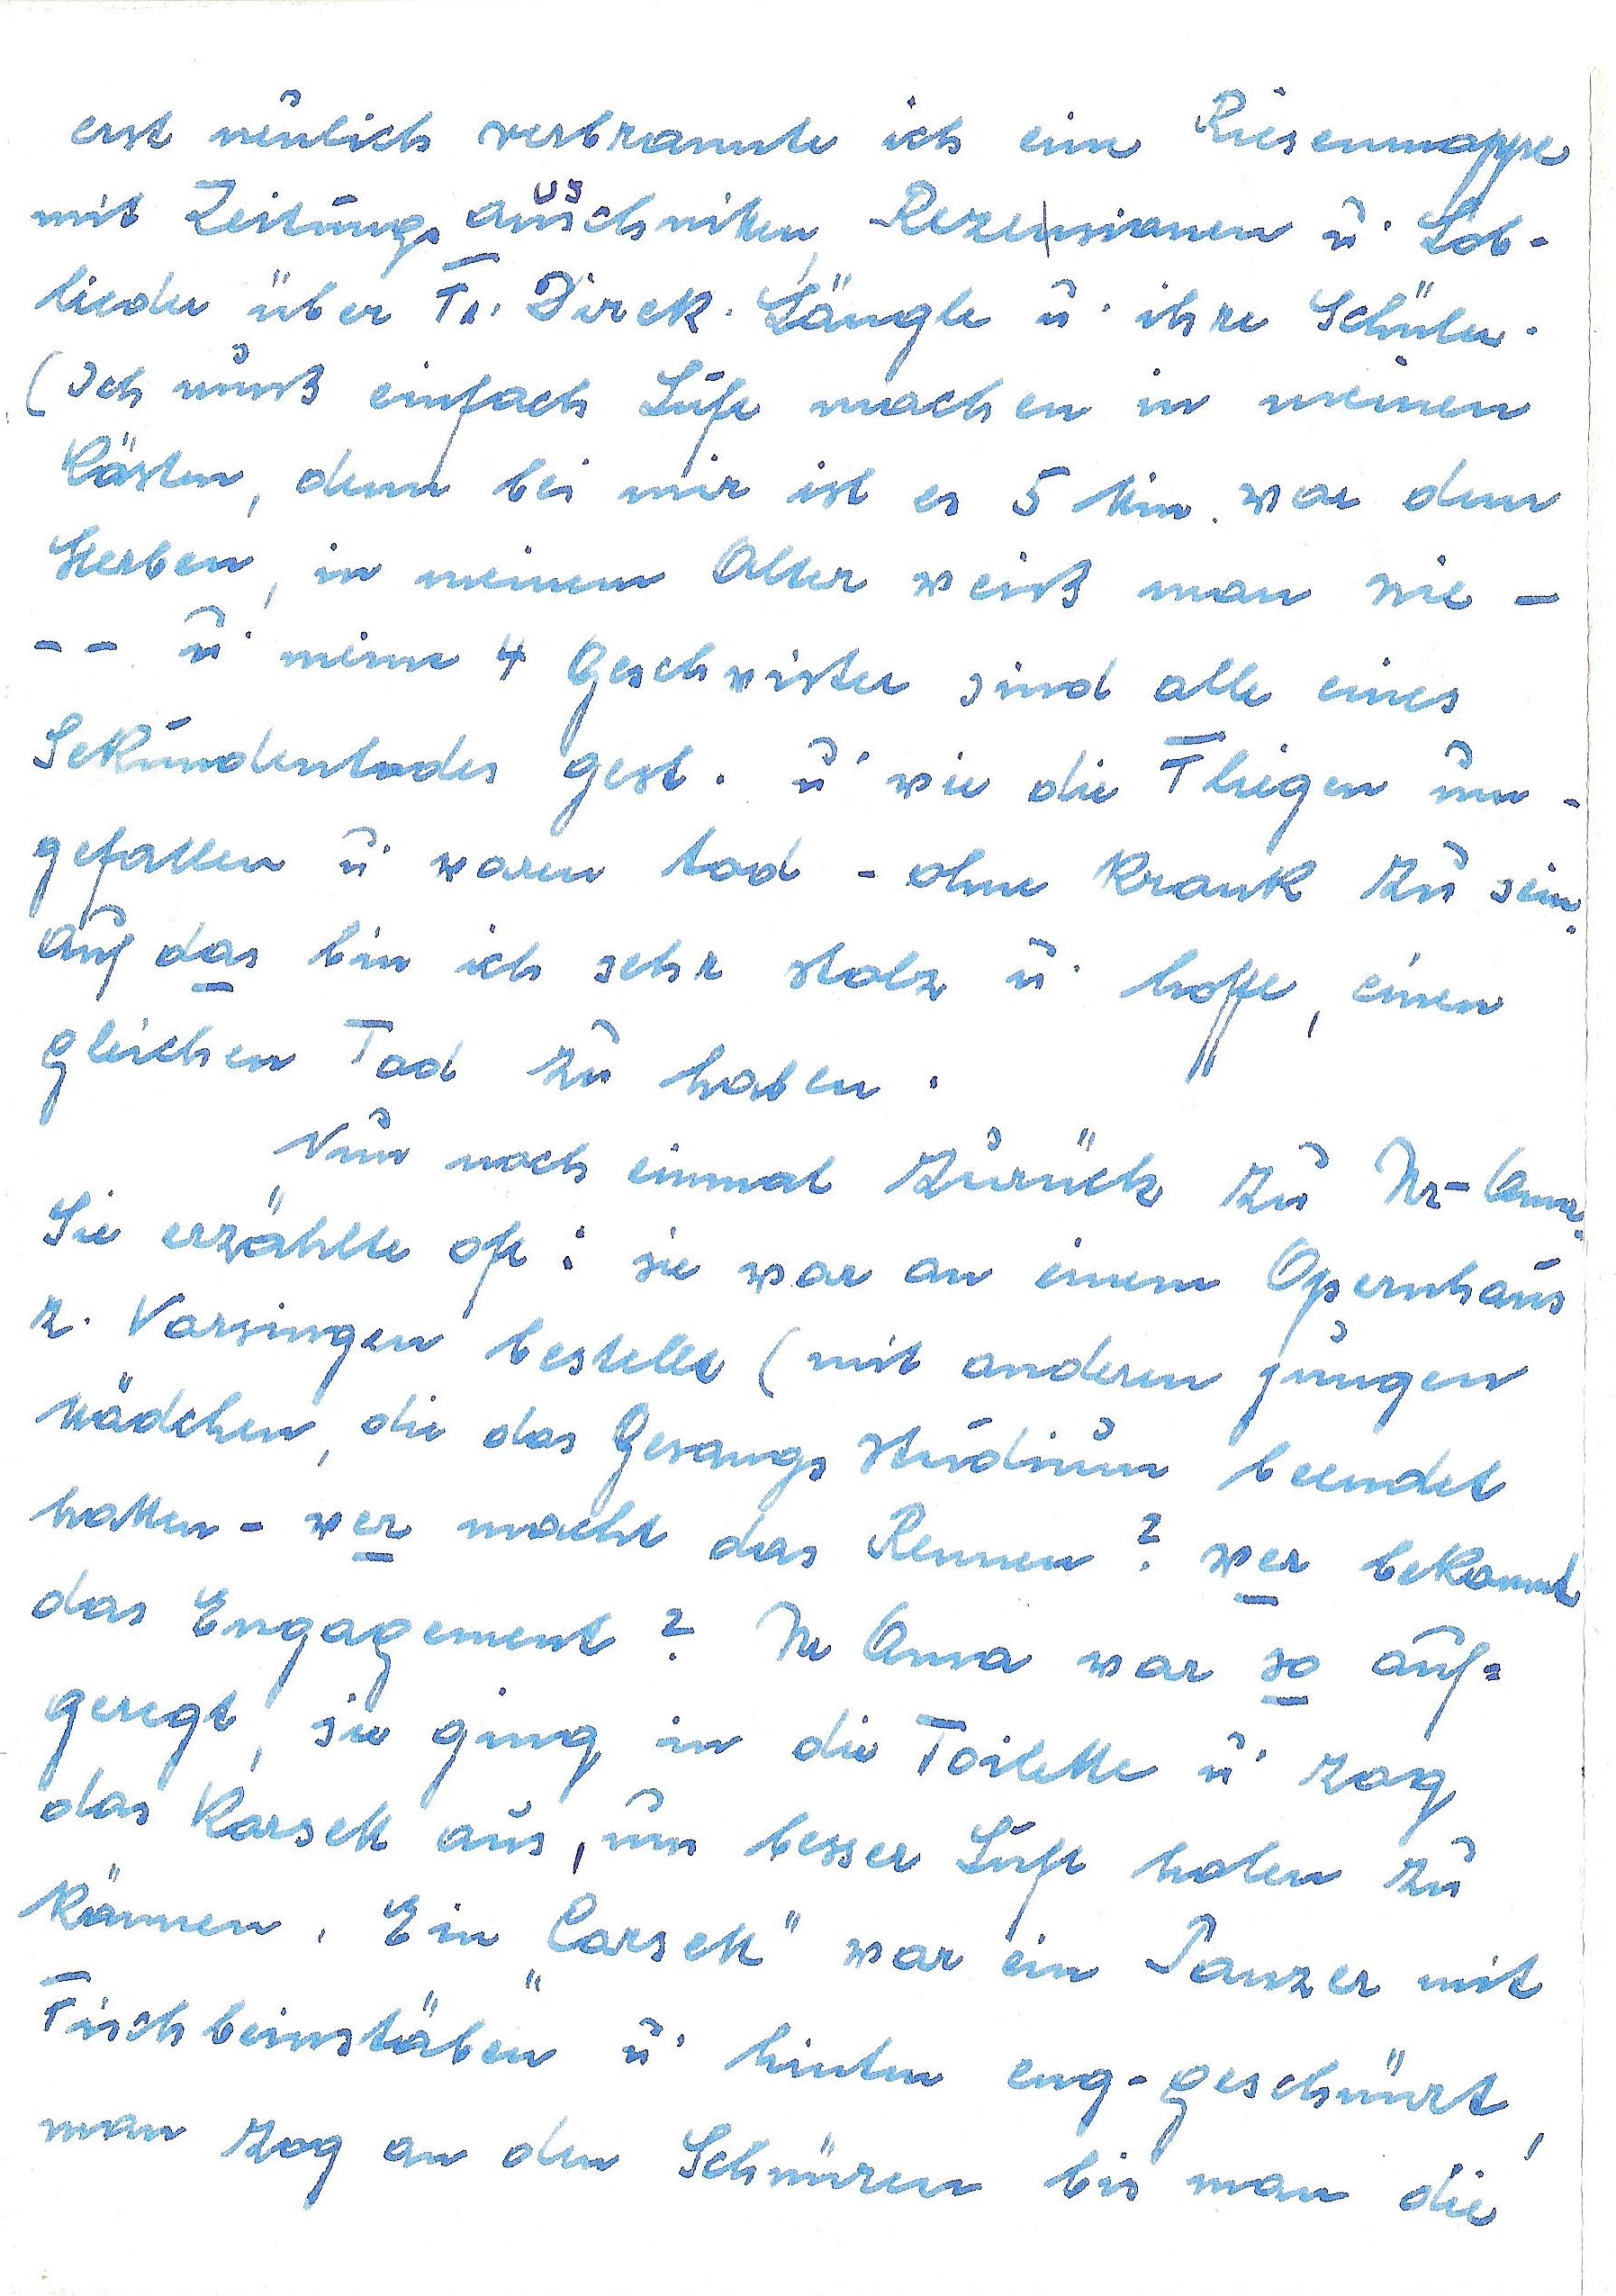 erst neulich verbrannte ich eine Riesenmappe
mit Zeitungsausschnitten, Rezensionen u. Lob-
lieder über Fr. Direk. Längle u. ihre Schüler.
(Ich muß einfach Luft machen in meinen
Kästen, denn bei mir ist es 5 Min. vor dem
Sterben, in meinem Alter weiß man nie -
-- u. meine 4 Geschwister sind alle eines
Sekundentodes gest. u. wie die Fliegen um-
gefallen u. waren tod - ohne krank zu sein.
Auf das bin ich sehr stolz u. hoffe, einen
gleichen Tod zu haben.
Nun noch einmal zurück zu Ur-Oma.
Sie erzählte oft: sie war an einem Opernhaus
z. Vorsingen bestellt (mit anderen jungen
Mädchen, die das Gesangsstudium beendet
hatten - wer macht das Rennen? wer bekommt
das Engagement? Ur Oma war so auf-
geregt, sie ging in die Toilette u. zog
das Korsett aus, um besser Luft holen zu
können. Ein "Corsett" war ein Panzer mit
"Fischbeinstäben" u. hinten eng-geschnürt,
man zog an den Schnüren bis man die